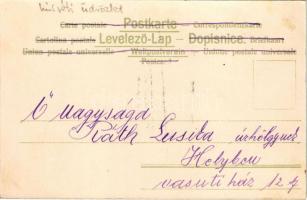 húsvéti üdvözlet
Carte postale – Postkarte – Correspondenzkarte
Cartolina postale – Levelező-Lap – Dopisnice. Brefkort
Union postale universelle – Weltpostverein – Union postale universelle
Ő Nagysága
Ráth Luszika úrhölgynek
Helyben
vasuti ház 12